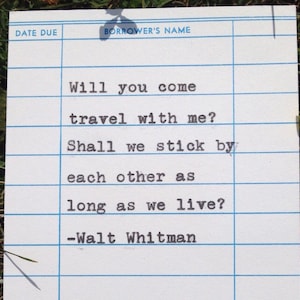 DATE DUE BORROWER'S NAME
Will you come
travel with me?
Shall we stick by
each other as
long as we live?
-Walt Whitman